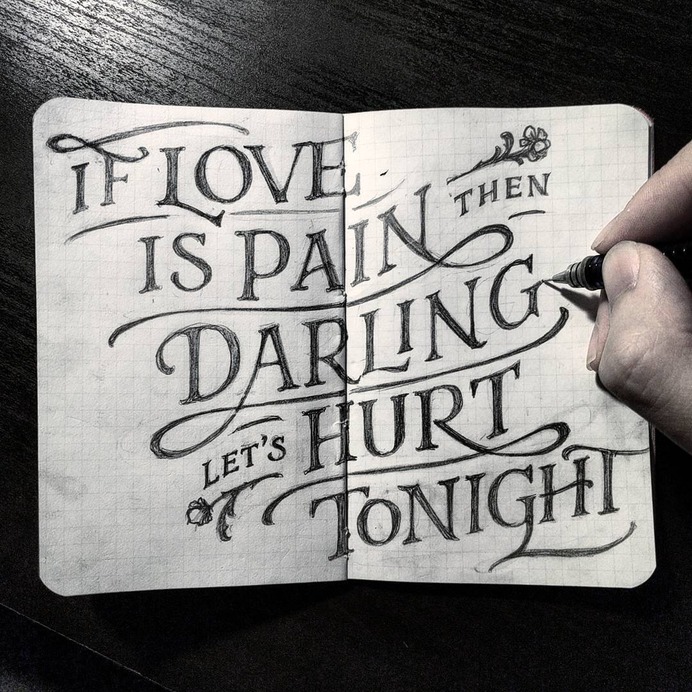 iF LOVE
IS PAIN THEN
DARLING
LET'S HURT
ToNIGHT